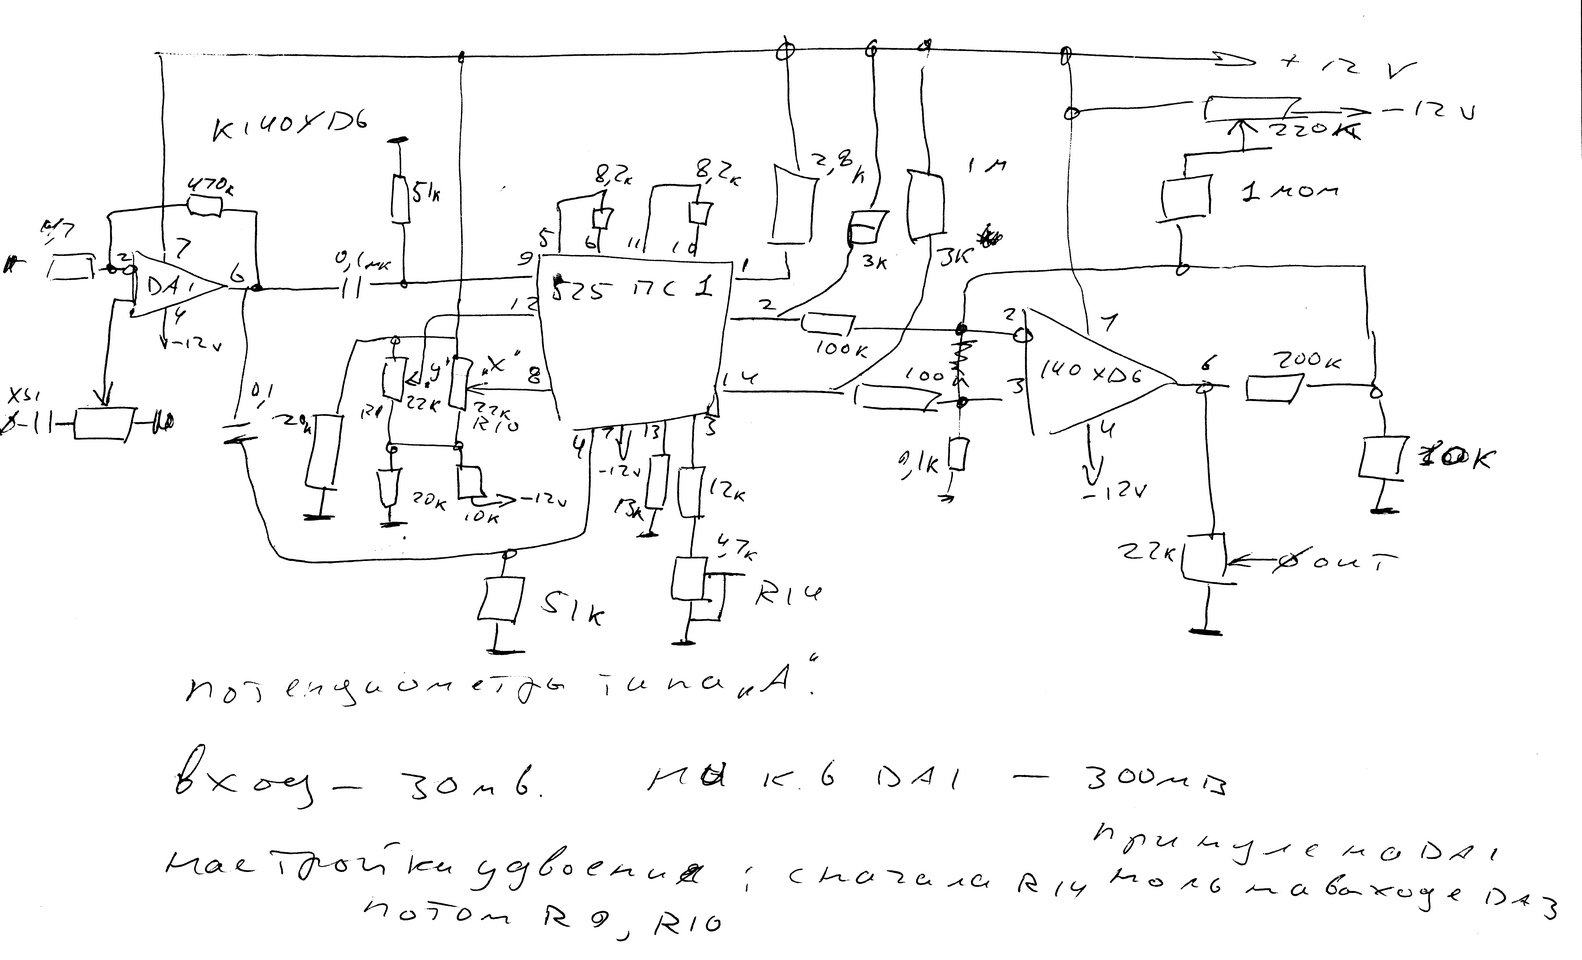 +12 V
-12 V
220K
К140УD6
470к
51к
8,2к
8,2к
2,8к
1 м
1 мом
3к
3К
7
2
DA1
6
4
-12v
0,1мк
9
5
6
11
10
1
525 ПС 1
12
2
14
8
100к
100к
2
7
140УD6
3
6
4
-12v
200к
XS1
0,1
20к
"У"
22К
"X"
22к
R10
20к
10к
-12v
4
7
13
3
-12v
13к
12к
4,7к
R14
51к
22к
OUT
потенциометры типа "А".
вход - 30мв. на к.6 DA1 - 300мВ
настройки удвоения: сначала R14 ноль на выходе DA3
при нуле на DA1
потом R9, R10